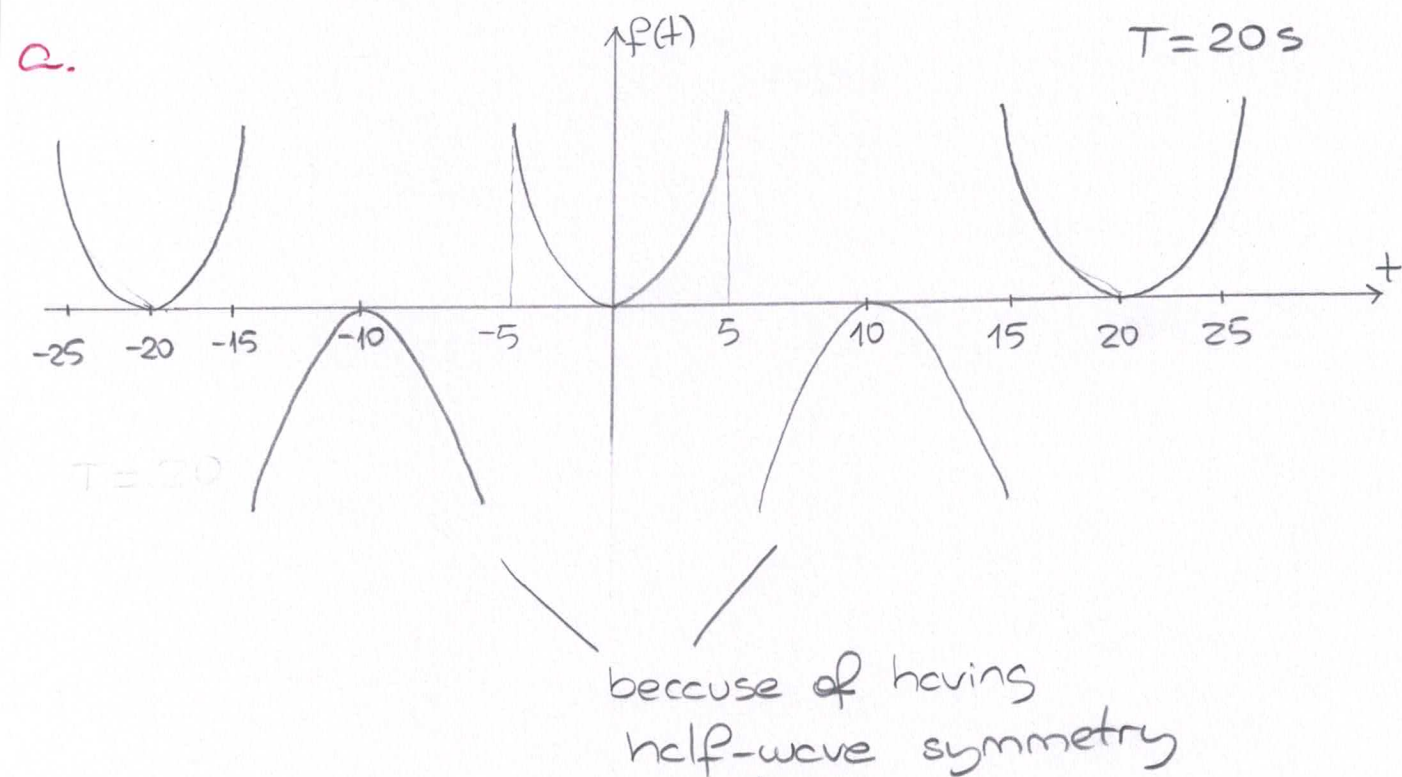 a.
f(t)
T=20s
t
-25 -20 -15 -10 -5 5 10 15 20 25
T=20
because of having
half-wave symmetry